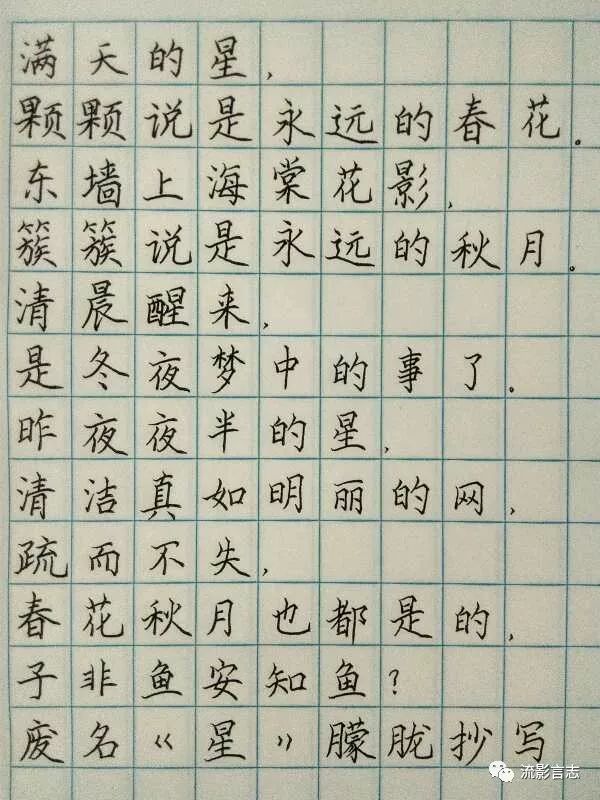 满天的星，
颗颗说是永远的春花。
东墙上海棠花影，
簇簇说是永远的秋月。
清晨醒来，
是冬夜梦中的事了。
昨夜夜半的星，
清洁真如明丽的网，
疏而不失，
春花秋月也都是的，
子非鱼安知鱼？
废名《星》朦胧抄写
流影言志